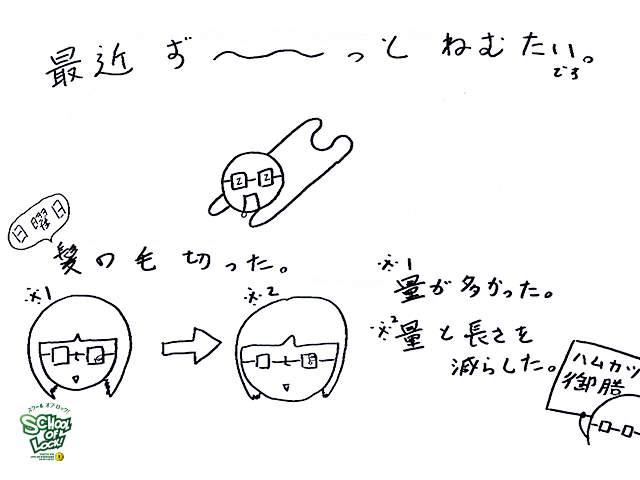 最近 ず〜〜っと ねむたい。
です
Z Z
日曜日
髪の毛切った。
※1
※2
※1 量が多かった。
※2 量と長さを
減らした。
ハムカツ
御膳
スクール オブ ロック!
SCHOOL
OF
LOCK!